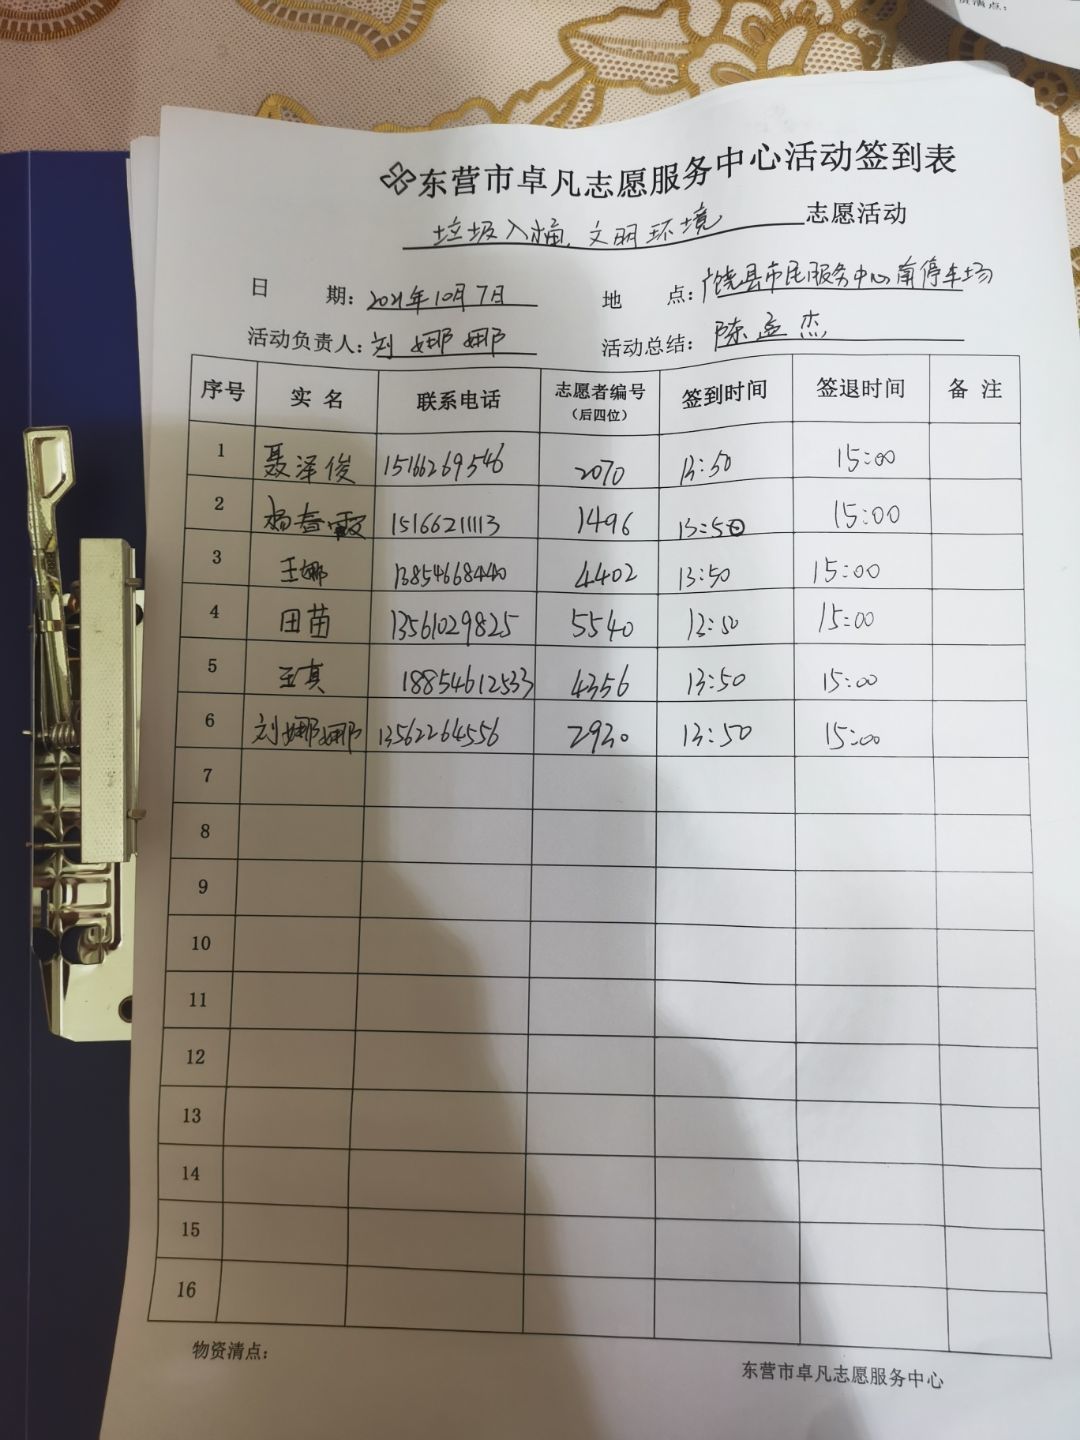 资清点：
东营市卓凡志愿服务中心活动签到表
垃圾入桶，文明环境 志愿活动
日 期：2021年10月7日 地 点：广饶县市民服务中心南停车场
活动负责人：刘娜娜 活动总结：陈孟杰
序号 实 名 联系电话 志愿者编号（后四位） 签到时间 签退时间 备 注
1 聂泽俊 15166269546 2070 13:50 15:00
2 杨春霞 15166211113 1496 13:50 15:00
3 王娜 13854668440 4402 13:50 15:00
4 田苗 13561029825 5540 13:50 15:00
5 王真 18854612533 4356 13:50 15:00
6 刘娜娜 13562264556 2930 13:50 15:00
7
8
9
10
11
12
13
14
15
16
物资清点：
东营市卓凡志愿服务中心